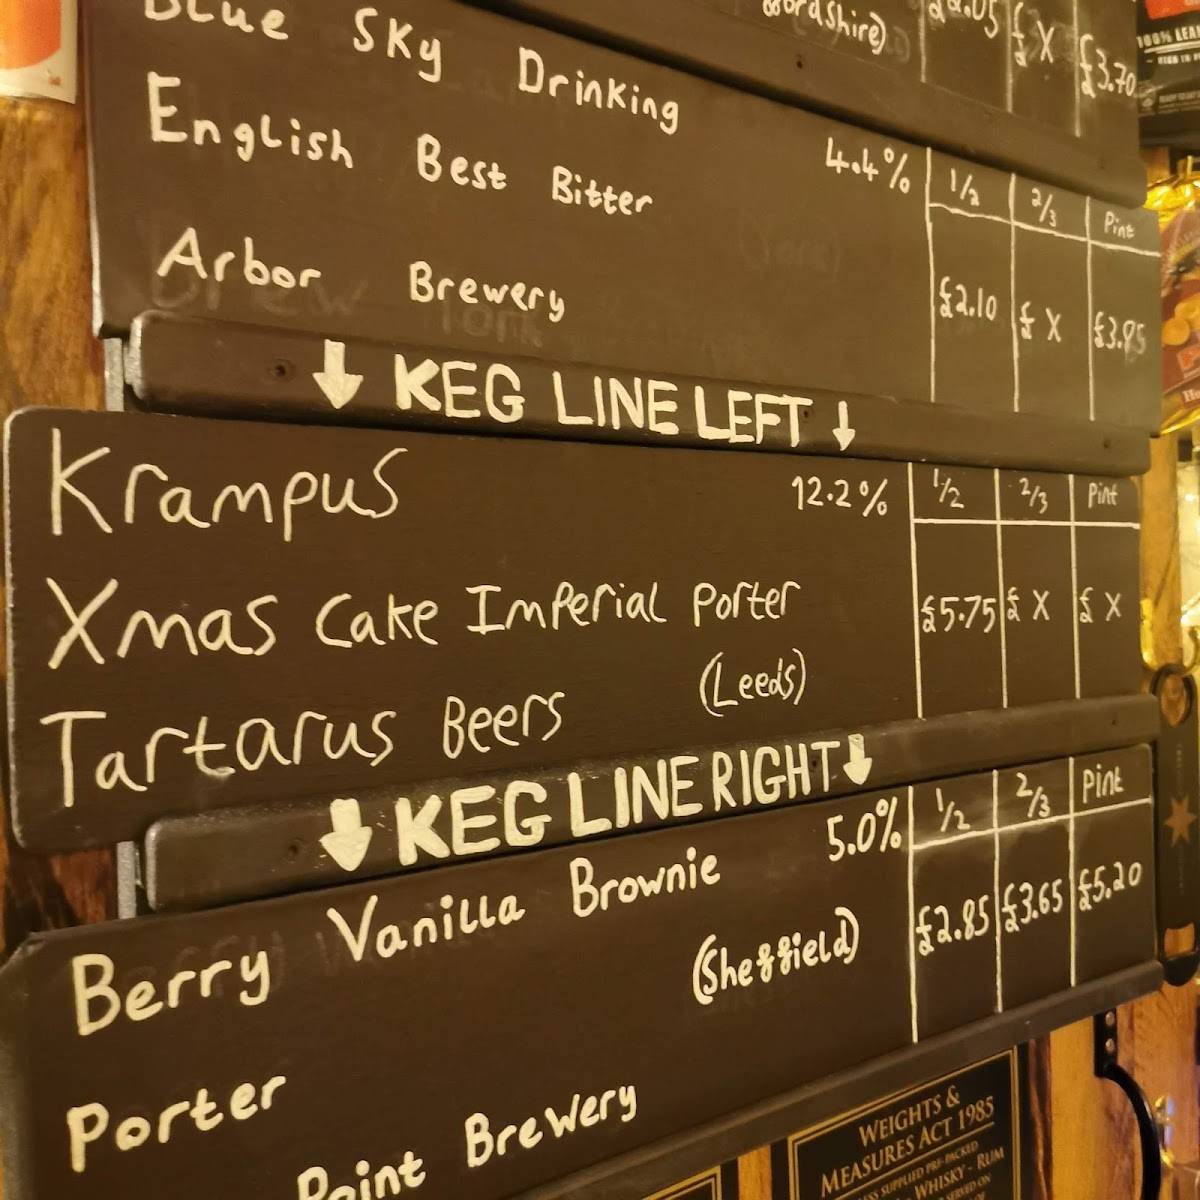 £2.05 £ X £3.70
Blue Sky Drinking
English Best Bitter 4.4% 1/2 2/3 Pint
Arbor Brewery £2.10 £ X £3.95
↓ KEG LINE LEFT ↓
Krampus 12.2% 1/2 2/3 Pint
Xmas Cake Imperial Porter £5.75 £ X £ X
Tartarus Beers (Leeds)
↓ KEG LINE RIGHT ↓
Berry Vanilla Brownie 5.0% 1/2 2/3 Pint
(Sheffield) £2.85 £3.65 £5.20
Porter
Point Brewery
WEIGHTS &
MEASURES ACT 1985
SUPPLIED PRE-PACKED
WHISKY - RUM
SERVED ON